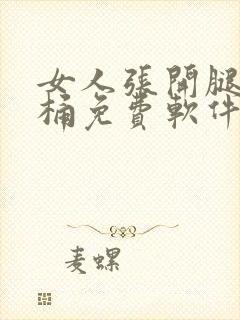 女人張開腿
桶免費軟件
麦螺